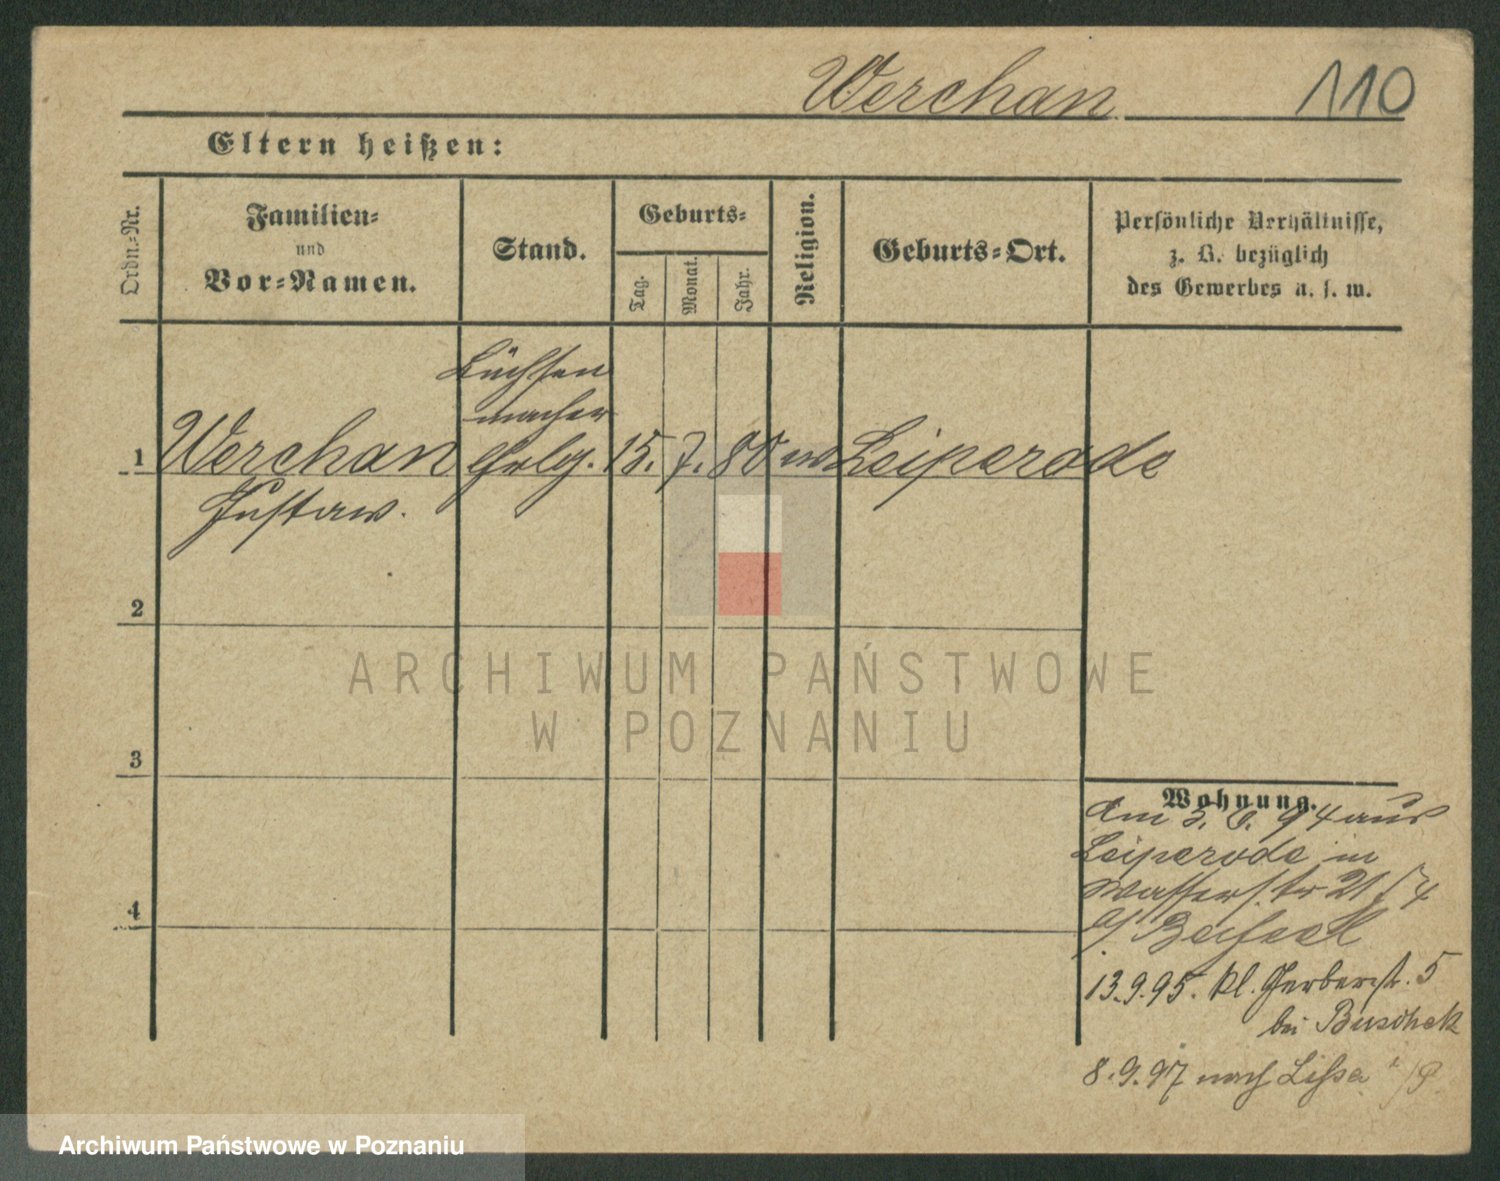 Werchan 110
Eltern heißen:
Ordn.-Nr.
Familien-
und
Vor-Namen.
Stand.
Geburts-
Tag.
Monat.
Jahr.
Religion.
Geburts-Ort.
Persönliche Verhältnisse,
z. B. bezüglich
des Gewerbes u. s. w.
Büchsen
macher
1 Werchan 15. 7. 80 Leiperode
Gustaw.
2
3
4
Wohnung.
Am 3. 6. 94 aus
Leiperode in
Wasserstr 21
13.9.95. kl. Gerberstr. 5
bei Buschek
8.9.97 nach Lissa i/P
ARCHIWUM PAŃSTWOWE
W POZNANIU
Archiwum Państwowe w Poznaniu